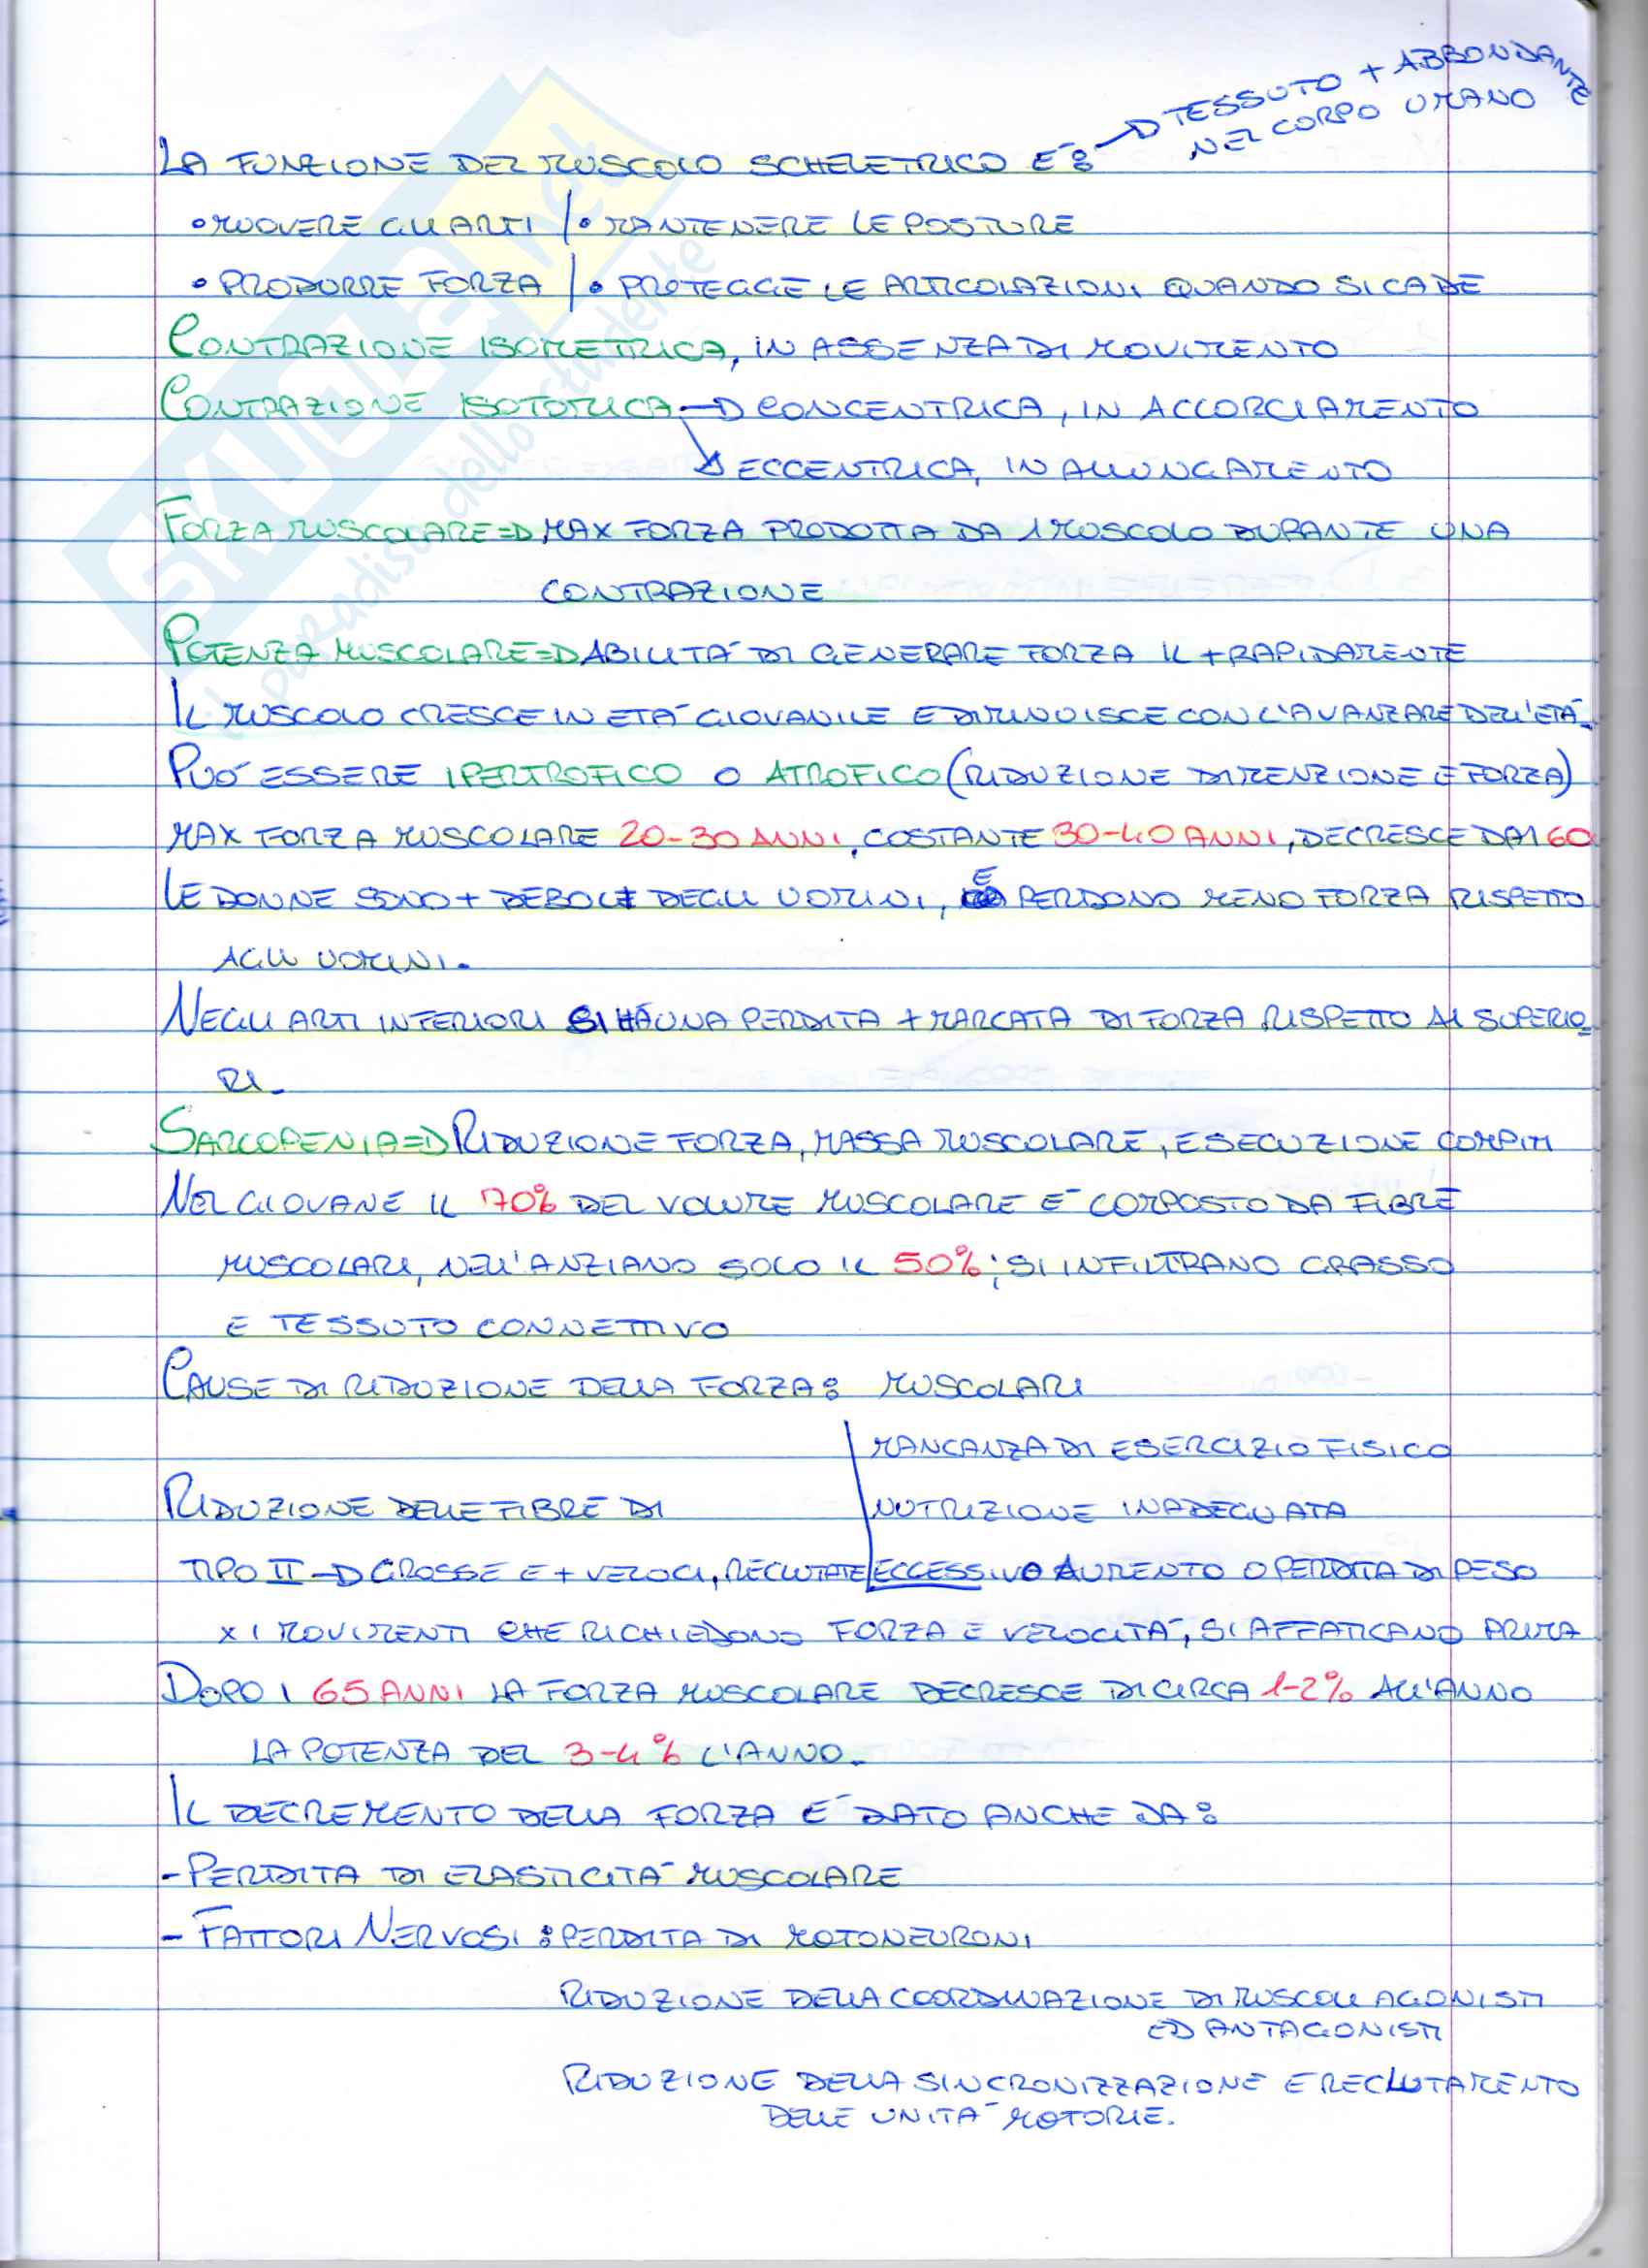 → TESSUTO + ABBONDANTE
NEL CORPO UMANO
LA FUNZIONE DEL MUSCOLO SCHELETRICO E':
• MUOVERE GLI ARTI / • MANTENERE LE POSTURE
• PRODURRE FORZA / • PROTEGGE LE ARTICOLAZIONI QUANDO SI CADE
CONTRAZIONE ISOMETRICA, IN ASSENZA DI MOVIMENTO
CONTRAZIONE ISOTONICA → CONCENTRICA, IN ACCORCIAMENTO
→ ECCENTRICA, IN ALLUNGAMENTO
FORZA MUSCOLARE => MAX FORZA PRODOTTA DA 1 MUSCOLO DURANTE UNA
CONTRAZIONE
POTENZA MUSCOLARE => ABILITA' DI GENERARE FORZA IL + RAPIDAMENTE
IL MUSCOLO CRESCE IN ETA' GIOVANILE E DIMINUISCE CON L'AVANZARE DELL'ETA'.
PUO' ESSERE IPERTROFICO O ATROFICO (RIDUZIONE DIMENZIONE E FORZA)
MAX FORZA MUSCOLARE 20-30 ANNI, COSTANTE 30-40 ANNI, DECRESCE DAI 60
LE DONNE SONO + DEBOLI DEGLI UOMINI, E PERDONO MENO FORZA RISPETTO
AGLI UOMINI.
NEGLI ARTI INFERIORI SI HA UNA PERDITA + MARCATA DI FORZA RISPETTO AI SUPERIO=
RI.
SARCOPENIA => RIDUZIONE FORZA, MASSA MUSCOLARE, ESECUZIONE COMPITI
NEL GIOVANE IL 70% DEL VOLUME MUSCOLARE E' COMPOSTO DA FIBRE
MUSCOLARI, NELL'ANZIANO SOLO IL 50%; SI INFILTRANO GRASSO
E TESSUTO CONNETTIVO
CAUSE DI RIDUZIONE DELLA FORZA: MUSCOLARI
MANCANZA DI ESERCIZIO FISICO
RIDUZIONE DELLE FIBRE DI NUTRIZIONE INADEGUATA
TIPO II → GROSSE E + VELOCI, RECLUTATE ECCESSIVO AUMENTO O PERDITA DI PESO
X I MOVIMENTI CHE RICHIEDONO FORZA E VELOCITA', SI AFFATICANO PRIMA
DOPO I 65 ANNI LA FORZA MUSCOLARE DECRESCE DI CIRCA 1-2% ALL'ANNO
LA POTENZA DEL 3-4% L'ANNO.
IL DECREMENTO DELLA FORZA E' DATO ANCHE DA:
- PERDITA DI ELASTICITA' MUSCOLARE
- FATTORI NERVOSI: PERDITA DI MOTONEURONI
RIDUZIONE DELLA COORDINAZIONE DI MUSCOLI AGONISTI
ED ANTAGONISTI
RIDUZIONE DELLA SINCRONIZZAZIONE E RECLUTAMENTO
DELLE UNITA' MOTORIE.
SKUOLA.net
il paradiso dello studente